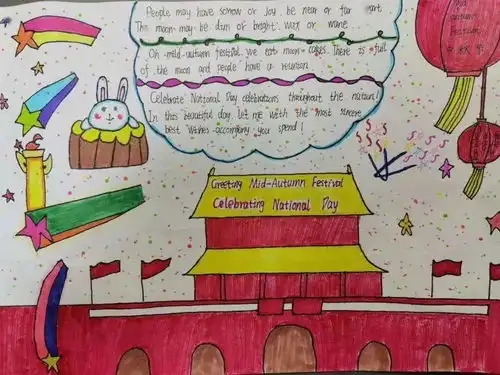 People may have sorrow or joy be near or far art.
The moon may be dim or bright wax or wane
On mild-autumn festival, we eat moon cakes. There is full
of the moon and people have a reunion.
Celebrate National Day celebrations throughout the nation!
In this beautiful day, let me with the most sincere
best wishes accompany you spend!
Autumn
Festival
Greeting Mid-Autumn Festival
Celebrating National Day